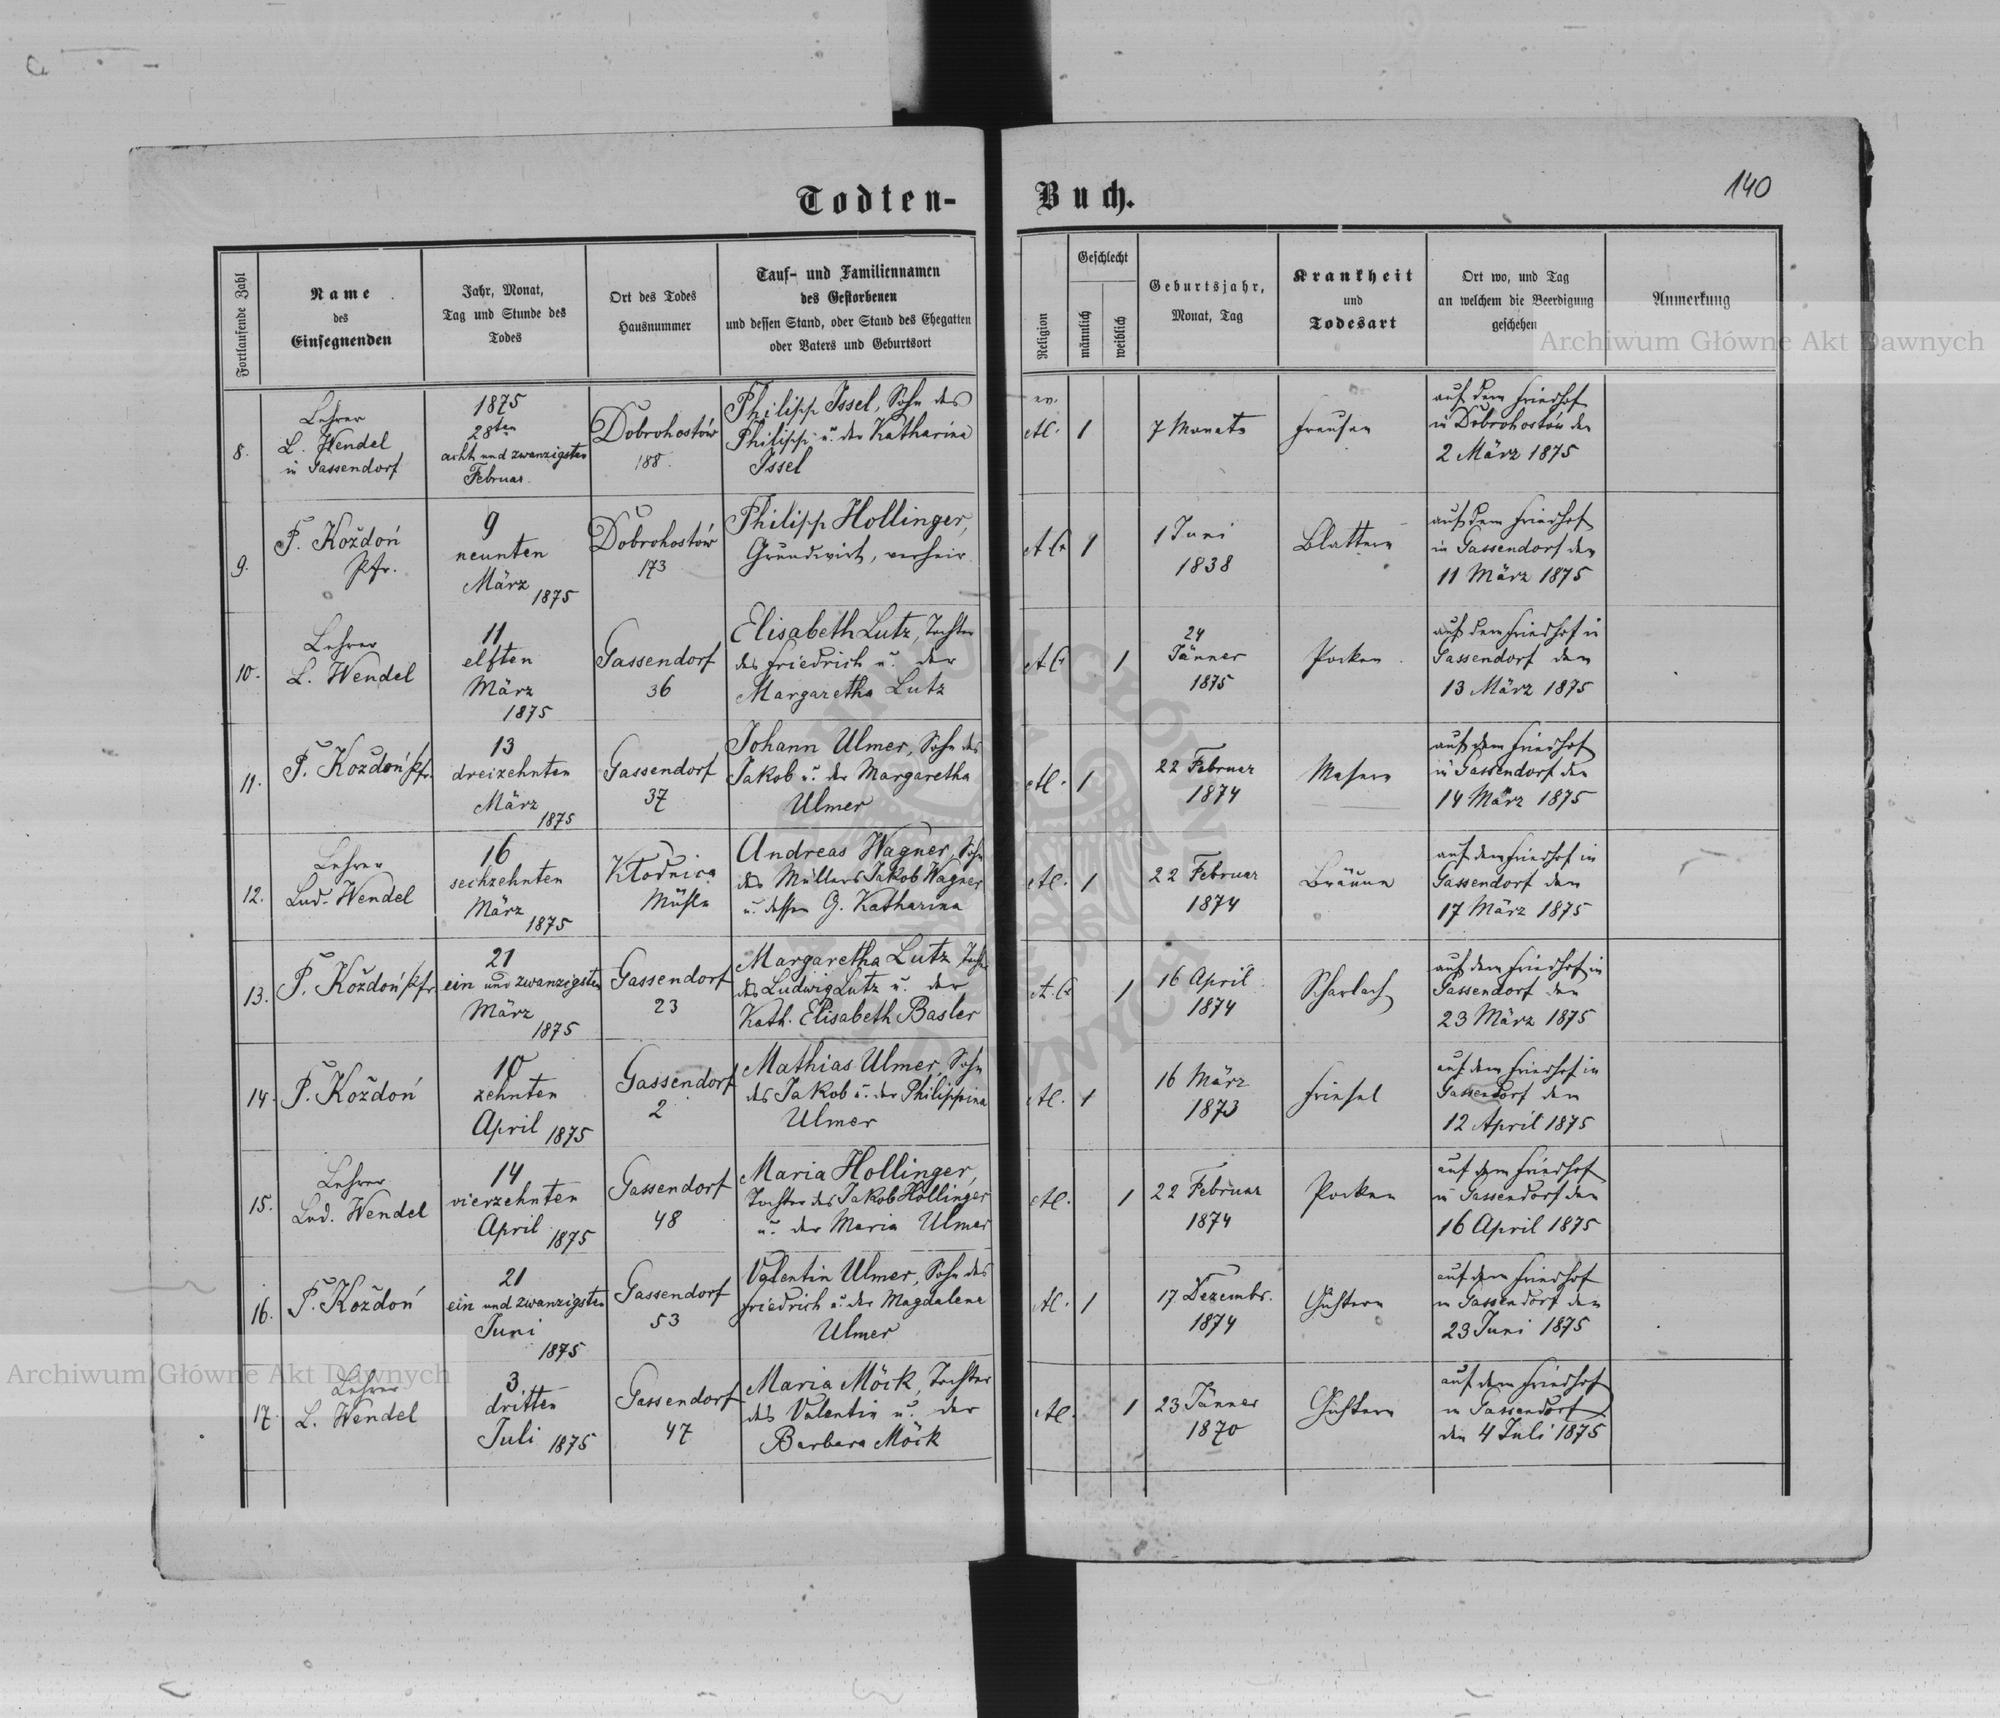 140
Todten-Buch.
Fortlaufende Zahl
Name
des
Einsegnenden
Jahr, Monat,
Tag und Stunde des
Todes
Ort des Todes
Hausnummer
Tauf- und Familiennamen
des Gestorbenen
und dessen Stand, oder Stand des Ehegatten
oder Vaters und Geburtsort
Religion
Geschlecht
männlich
weiblich
Geburtsjahr,
Monat, Tag
Krankheit
und
Todesart
Ort wo, und Tag
an welchem die Beerdigung
geschehen
Anmerkung
Archiwum Główne Akt Dawnych
8.
Lehrer
L. Wendel
in Gassendorf
1875
28ten
acht und zwanzigsten
Februar.
Dobrohostów
188.
Philipp Issel, Sohn des
Philipp u. der Katharina
Issel
ev.
A.C.
1
7 Monate
Freusen
auf dem Friedhof
in Dobrohostów den
2 März 1875
9.
P. Koždoń
Pfr.
9
neunten
März
1875
Dobrohostów
173
Philipp Hollinger,
Grundwirt, verheir.
A C
1
1 Juni
1838
Blattern
auf dem Friedhof
in Gassendorf den
11 März 1875
10.
Lehrer
L. Wendel
11
elften
März
1875
Gassendorf
36
Elisabeth Lutz, Tochter
des Friedrich u. der
Margaretha Lutz
A C
1
24
Jänner
1875
Pocken
auf dem Friedhof in
Gassendorf den
13 März 1875
11.
P. Koždoń Pfr.
13
dreizehnten
März
1875
Gassendorf
37
Johann Ulmer, Sohn des
Jakob u. der Margaretha
Ulmer
A C.
1
22 Februar
1874
Masern
auf dem Friedhof
in Gassendorf den
14 März 1875
12.
Lehrer
Lud. Wendel
16
sechzehnten
März
1875
Kłodnica
Mühle
Andreas Wagner, Sohn
des Müllers Jakob Wagner
u. dessen G. Katharina
A C.
1
22 Februar
1874
Bräune
auf dem Friedhof in
Gassendorf den
17 März 1875
13.
P. Koždoń Pfr.
21
ein und zwanzigsten
März
1875
Gassendorf
23
Margaretha Lutz, Tocht.
des Ludwig Lutz u. der
Kath. Elisabeth Basler
A. C
1
16 April
1874
Scharlach
auf dem Friedhof in
Gassendorf den
23 März 1875
14.
P. Koždoń
10
zehnten
April 1875
Gassendorf
2
Mathias Ulmer, Sohn
des Jakob u. der Philippina
Ulmer
A C.
1
16 März
1873
Friesel
auf dem Friedhof in
Gassendorf den
12 April 1875
15.
Lehrer
Lud. Wendel
14
vierzehnten
April 1875
Gassendorf
48
Maria Hollinger,
Tochter des Jakob Hollinger
u. der Maria Ulmer
A C.
1
22 Februar
1874
Pocken
auf dem Friedhof
in Gassendorf den
16 April 1875
16.
P. Koždoń
21
ein und zwanzigsten
Juni
1875
Gassendorf
53
Valentin Ulmer, Sohn des
Friedrich u. der Magdalena
Ulmer
A C.
1
17 Dezembr.
1874
Gichtern
auf dem Friedhof
in Gassendorf den
23 Juni 1875
17.
Lehrer
L. Wendel
3
dritten
Juli 1875
Gassendorf
47
Maria Möck, Tochter
des Valentin u. der
Barbara Möck
A C.
1
23 Jänner
1870
Gichtern
auf dem Friedhof
in Gassendorf
den 4 Juli 1875
Archiwum Główne Akt Dawnych